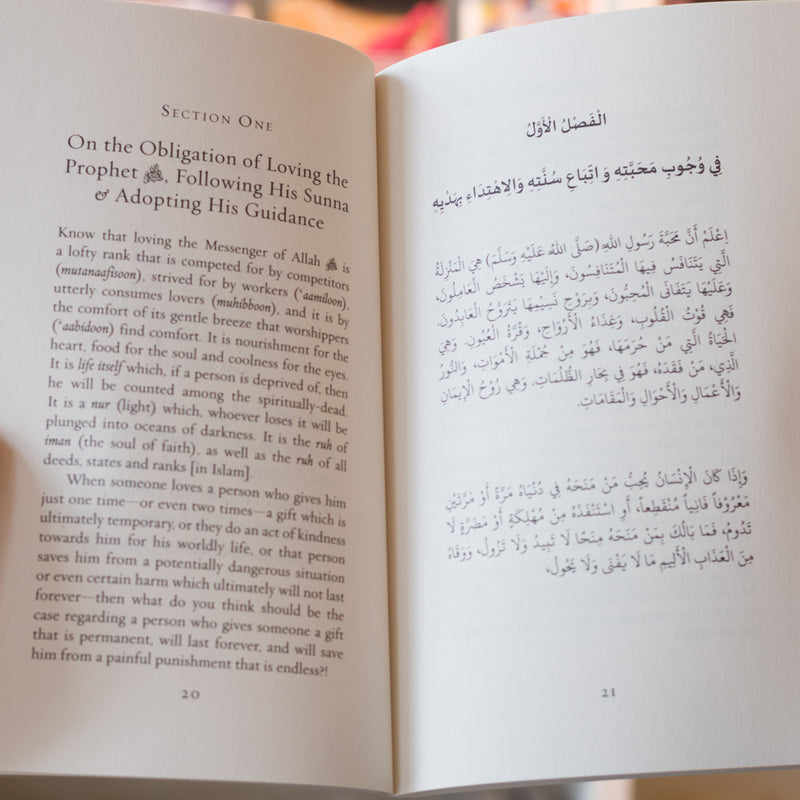 SECTION ONE
On the Obligation of Loving the
Prophet ﷺ, Following His Sunna
& Adopting His Guidance
Know that loving the Messenger of Allah ﷺ is
a lofty rank that is competed for by competitors
(mutanaafisoon), strived for by workers (‘aamiloon),
utterly consumes lovers (muhibboon), and it is by
the comfort of its gentle breeze that worshippers
(‘aabidoon) find comfort. It is nourishment for the
heart, food for the soul and coolness for the eyes.
It is life itself which, if a person is deprived of, then
he will be counted among the spiritually-dead.
It is a nur (light) which, whoever loses it will be
plunged into oceans of darkness. It is the ruh of
iman (the soul of faith), as well as the ruh of all
deeds, states and ranks [in Islam].
When someone loves a person who gives him
just one time—or even two times—a gift which is
ultimately temporary, or they do an act of kindness
towards him for his worldly life, or that person
saves him from a potentially dangerous situation
or even certain harm which ultimately will not last
forever—then what do you think should be the
case regarding a person who gives someone a gift
that is permanent, will last forever, and will save
him from a painful punishment that is endless?!
20
الْفَصْلُ الْأَوَّلُ
فِي وُجُوبِ مَحَبَّتِهِ وَ اتِّبَاعِ سُنَّتِهِ وَالِاهْتِدَاءِ بِهَدْيِهِ
اِعْلَمْ أَنَّ مَحَبَّةَ رَسُولِ اللهِ (صَلَّى اللهُ عَلَيْهِ وَسَلَّمَ) هِيَ الْمَنْزِلَةُ
الَّتِي يَتَنَافَسُ فِيهَا الْمُتَنَافِسُونَ، وَإِلَيْهَا يَشْخَصُ الْعَامِلُونَ،
وَعَلَيْهَا يَتَفَانَى الْمُحِبُّونَ، وَبِرَوْحِ نَسِيمِهَا يَتَرَوَّحُ الْعَابِدُونَ.
فَهِيَ قُوْتُ الْقُلُوبِ، وَغِذَاءُ الْأَرْوَاحِ، وَقُرَّةُ الْعُيُونِ. وَهِيَ
الْحَيَاةُ الَّتِي مَنْ حُرِمَهَا، فَهُوَ مِنْ جُمْلَةِ الْأَمْوَاتِ، وَالنُّورُ
الَّذِي، مَنْ فَقَدَهُ، فَهُوَ فِي بِحَارِ الظُّلُمَاتِ. وَهِيَ رُوْحُ الْإِيمَانِ
وَالْأَعْمَالِ وَالْأَحْوَالِ وَالْمَقَامَاتِ.
وَإِذَا كَانَ الْإِنْسَانُ يُحِبُّ مَنْ مَنَحَهُ فِي دُنْيَاهُ مَرَّةً أَوْ مَرَّتَيْنِ
مَعْرُوْفًا فَانِيًا مُنْقَطِعًا، أَوِ اسْتَنْقَذَهُ مِنْ مُهْلِكَةٍ أَوْ مَضَرَّةٍ لَا
تَدُومُ، فَمَا بَالُكَ بِمَنْ مَنَحَهُ مِنَحًا لَا تَبِيدُ وَلَا تَزُولُ، وَوَقَاهُ
مِنَ الْعَذَابِ الْأَلِيمِ مَا لَا يَفْنَى وَلَا يَحُولُ،
21